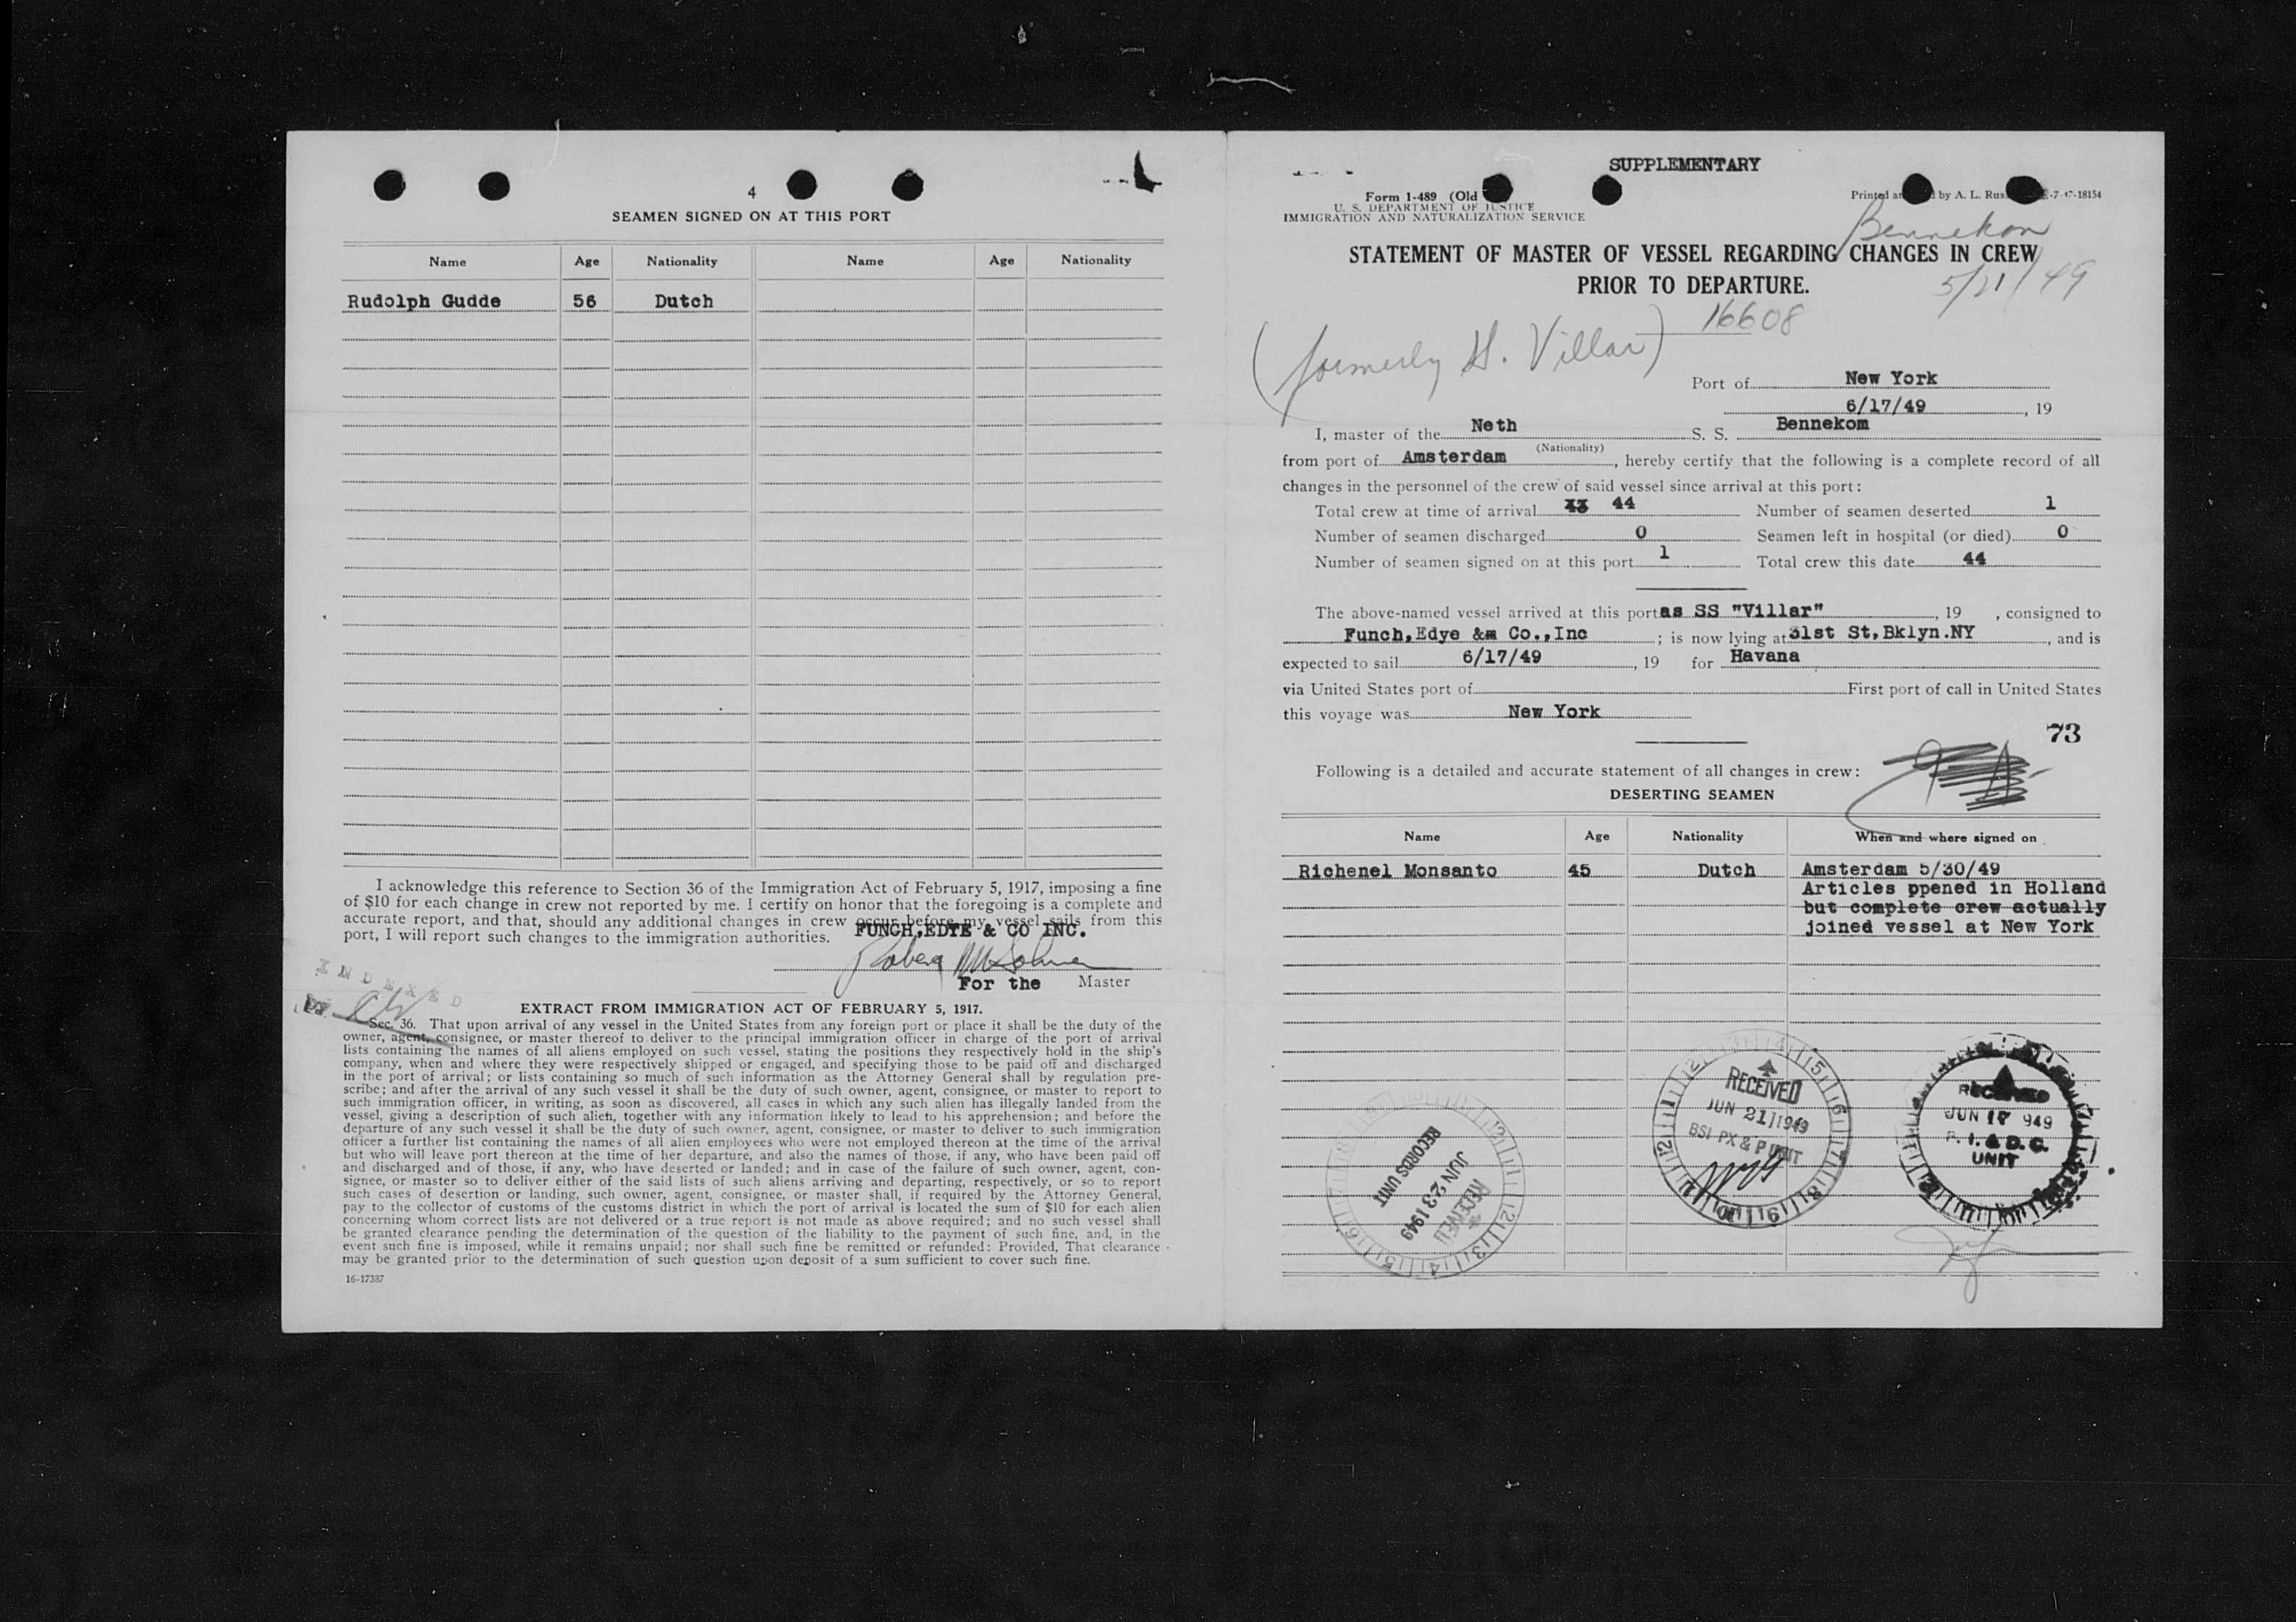 4
SEAMEN SIGNED ON AT THIS PORT
Name Age Nationality Name Age Nationality
Rudolph Gudde 56 Dutch
I acknowledge this reference to Section 36 of the Immigration Act of February 5, 1917, imposing a fine
of $10 for each change in crew not reported by me. I certify on honor that the foregoing is a complete and
accurate report, and that, should any additional changes in crew occur before my vessel sails from this
port, I will report such changes to the immigration authorities.
FUNCH,EDYE & CO INC.
For the Master
INDEXED
EXTRACT FROM IMMIGRATION ACT OF FEBRUARY 5, 1917.
Sec. 36. That upon arrival of any vessel in the United States from any foreign port or place it shall be the duty of the
owner, agent, consignee, or master thereof to deliver to the principal immigration officer in charge of the port of arrival
lists containing the names of all aliens employed on such vessel, stating the positions they respectively hold in the ship's
company, when and where they were respectively shipped or engaged, and specifying those to be paid off and discharged
in the port of arrival; or lists containing so much of such information as the Attorney General shall by regulation pre-
scribe; and after the arrival of any such vessel it shall be the duty of such owner, agent, consignee, or master to report to
such immigration officer, in writing, as soon as discovered, all cases in which any such alien has illegally landed from the
vessel, giving a description of such alien, together with any information likely to lead to his apprehension; and before the
departure of any such vessel it shall be the duty of such owner, agent, consignee, or master to deliver to such immigration
officer a further list containing the names of all alien employees who were not employed thereon at the time of the arrival
but who will leave port thereon at the time of her departure, and also the names of those, if any, who have been paid off
and discharged and of those, if any, who have deserted or landed; and in case of the failure of such owner, agent, con-
signee, or master so to deliver either of the said lists of such aliens arriving and departing, respectively, or so to report
such cases of desertion or landing, such owner, agent, consignee, or master shall, if required by the Attorney General,
pay to the collector of customs of the customs district in which the port of arrival is located the sum of $10 for each alien
concerning whom correct lists are not delivered or a true report is not made as above required; and no such vessel shall
be granted clearance pending the determination of the question of the liability to the payment of such fine, and, in the
event such fine is imposed, while it remains unpaid; nor shall such fine be remitted or refunded: Provided, That clearance
may be granted prior to the determination of such question upon deposit of a sum sufficient to cover such fine.
16-17337
SUPPLEMENTARY
Form 1-489 (Old
U. S. DEPARTMENT OF JUSTICE
IMMIGRATION AND NATURALIZATION SERVICE
Printed by A. L. Rus 7-47-18154
Bennekom
STATEMENT OF MASTER OF VESSEL REGARDING CHANGES IN CREW
PRIOR TO DEPARTURE.
5/21/49
16608
(formerly H. Villar)
Port of New York
6/17/49, 19
I, master of the Neth S. S. Bennekom
(Nationality)
from port of Amsterdam, hereby certify that the following is a complete record of all
changes in the personnel of the crew of said vessel since arrival at this port:
Total crew at time of arrival 44 Number of seamen deserted 1
Number of seamen discharged 0 Seamen left in hospital (or died) 0
Number of seamen signed on at this port 1 Total crew this date 44
The above-named vessel arrived at this port as SS "Villar", 19 , consigned to
Funch,Edye & Co.,Inc ; is now lying at 31st St,Bklyn.NY, and is
expected to sail 6/17/49, 19 for Havana
via United States port of First port of call in United States
this voyage was New York
73
Following is a detailed and accurate statement of all changes in crew:
DESERTING SEAMEN
Name Age Nationality When and where signed on
Richenel Monsanto 45 Dutch Amsterdam 5/30/49
Articles ppened in Holland
but complete crew actually
joined vessel at New York
RECEIVED
JUN 21 1949
BSI PX & P UNIT
RECEIVED
JUN 17 949
P. I. & D. C.
UNIT
RECEIVED
JUN 23 1949
RECORDS UNIT